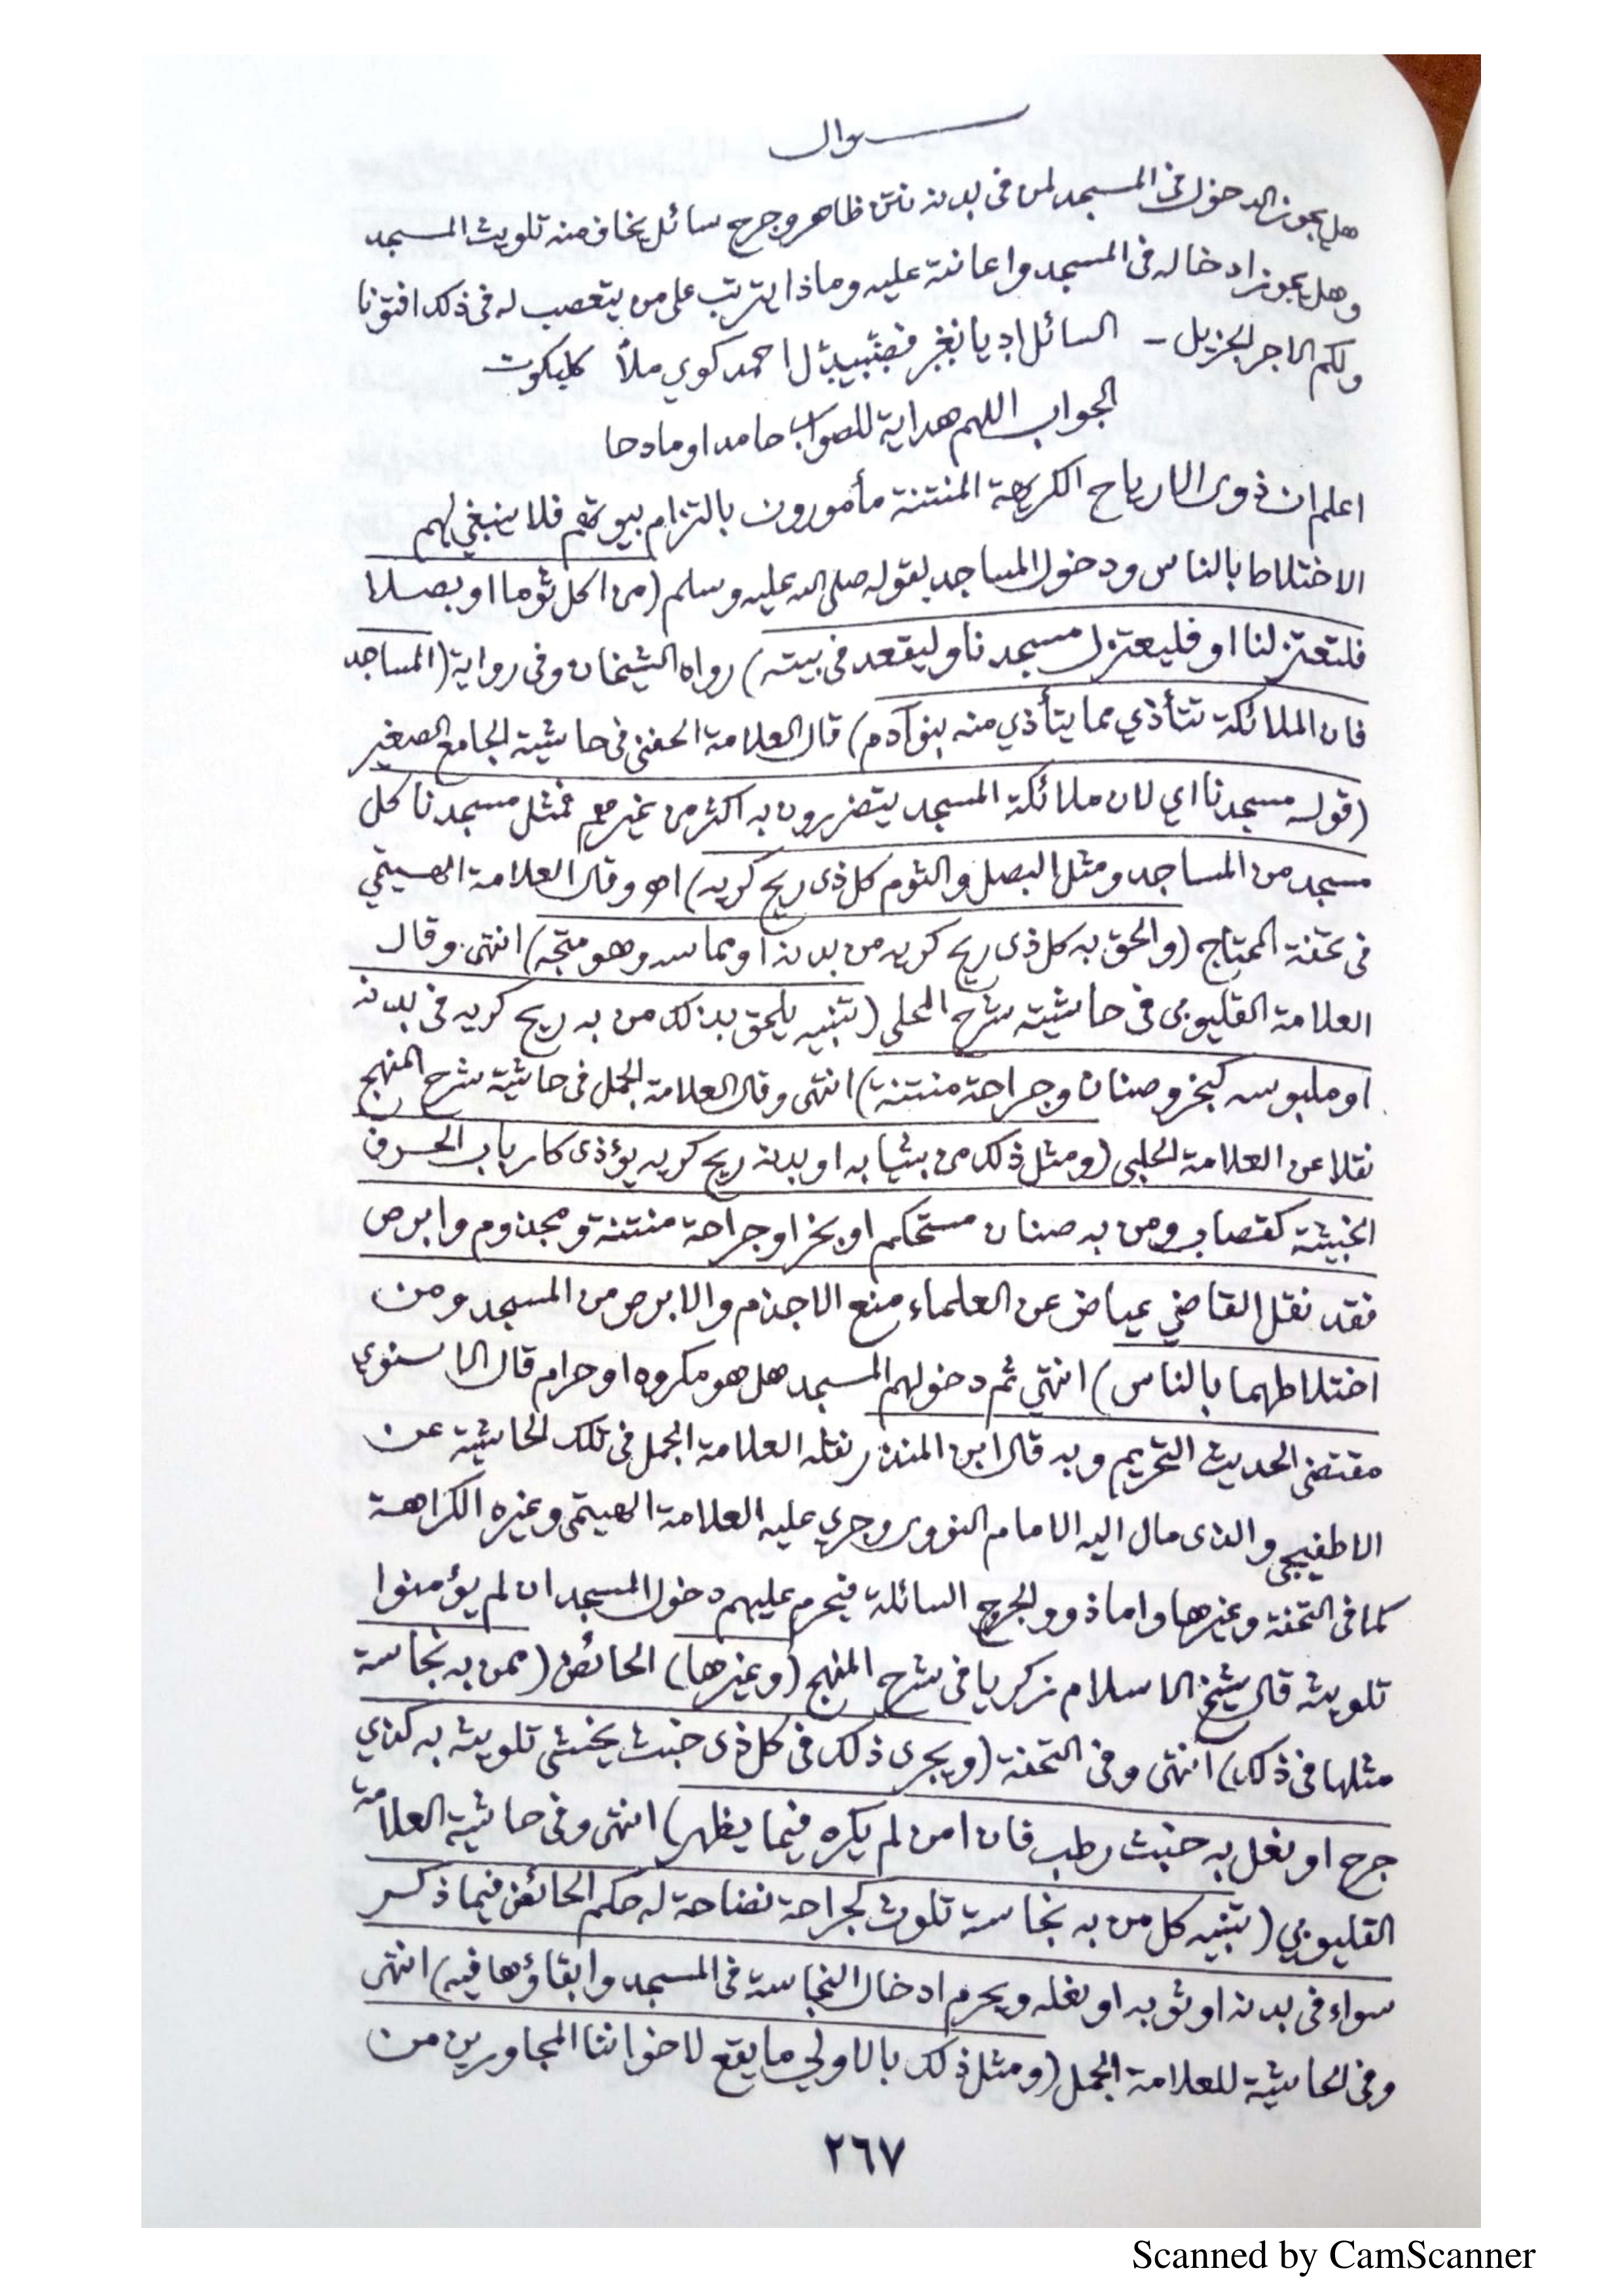 سوال
هل يجوز الدخول في المسجد لمن في بدنه نتن ظاهر وجرح سائل يخاف منه تلويث المسجد
وهل يجوز ادخاله في المسجد واعانته عليه وماذا يترتب على من يتعصب له في ذلك افتونا
ولكم الاجر الجزيل - السائل احمد كوي ملا كليكوت
الجواب اللهم هداية للصواب حامدا ومادحا
اعلم ان ذوى الارياح الكريهة المنتنة مأمورون بالتزام بيوتهم فلا ينبغي لهم
الاختلاط بالناس ودخول المساجد لقوله صلى الله عليه وسلم (من اكل ثوما او بصلا
فلتعتزلنا او فليعتزل مسجدنا وليقعد في بيته) رواه الشيخان وفي رواية (المساجد
فان الملائكة تتأذي مما يتأذي منه بنو آدم) قال العلامة الحفني في حاشية الجامع الصغير
(قوله مسجدنا اي لان ملائكة المسجد يتضررون به اكثر من غيرهم فمثل مسجدنا كل
مسجد من المساجد ومثل البصل والثوم كل ذى ريح كريه) اهـ وقال العلامة الهيتمي
في تحفة المحتاج (والحق به كل ذى ريح كريه من بدنه او مماسه وهو متجه) انتهى. وقال
العلامة القليوبي في حاشية شرح المحلي (تنبيه يلحق بذلك من به ريح كريه في بدنه
او ملبوسه كبخر وصنان وجراحة منتنة) انتهى وقال العلامة الجمل في حاشية شرح المنهج
نقلا عن العلامة الحلبي (ومثل ذلك من بثيابه او بدنه ريح كريه يؤذى كارباب الحرف
الخبيثة كقصاب ومن به صنان مستحكم او بخر او جراحة منتنة ومجذوم وابرص
فقد نقل القاضي عياض عن العلماء منع الاجذم والابرص من المسجد ومن
اختلاطهما بالناس) انتهي ثم دخولهم المسجد هل هو مكروه او حرام قال الاسنوي
مقتضى الحديث التحريم وبه قال ابن المنذر نقله العلامة الجمل في تلك الحاشية عن
الاطفيحي والذى مال اليه الامام النووى وجري عليه العلامة الهيتمى وغيره الكراهة
كما في التحفة وغيرها واما ذوو الجرح السائلة فيحرم عليهم دخول المسجد ان لم يؤمنوا
تلويثه قال شيخ الاسلام زكريا في شرح المنهج (وغيرها) الحائض (ممن به نجاسة
مثلها في ذلك) انتهى وفي التحفة (ويجرى ذلك في كل ذى خبث يخشى تلويثه به كذي
جرح او نعل به خبث رطب فان امن لم يكره فيما يظهر) انتهى وفي حاشية العلامة
القليوبي (تنبيه كل من به نجاسة تلوث كجراحة نضاحة له حكم الحائض فيما ذكر
سواء في بدنه او ثوبه او نعله ويحرم ادخال النجاسة في المسجد وابقاؤها فيه) انتهى
وفي الحاشية للعلامة الجمل (ومثل ذلك بالاولي ما يقع لاخواننا المجاورين من
٢٦٧
Scanned by CamScanner